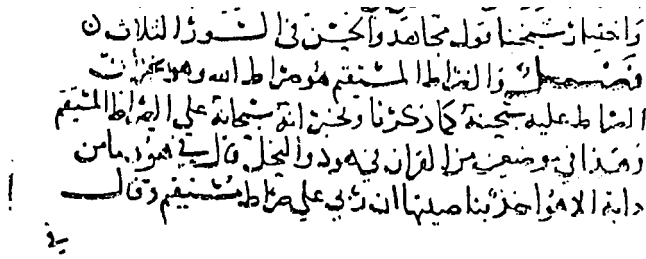 واختيار شيخنا قول مجاهد والحسن في السور الثلاث ن
فصل والصراط المستقيم هو صراط الله وهو يخبر ان
الصراط عليه سبحانه كما ذكرنا ويخبر انه سبحانه على الصراط المستقيم
وهذا في موضعين من القران في هود والنحل قال في هود ما من
دابة الا هو اخذ بناصيتها ان ربي على صراط مستقيم وقال
في